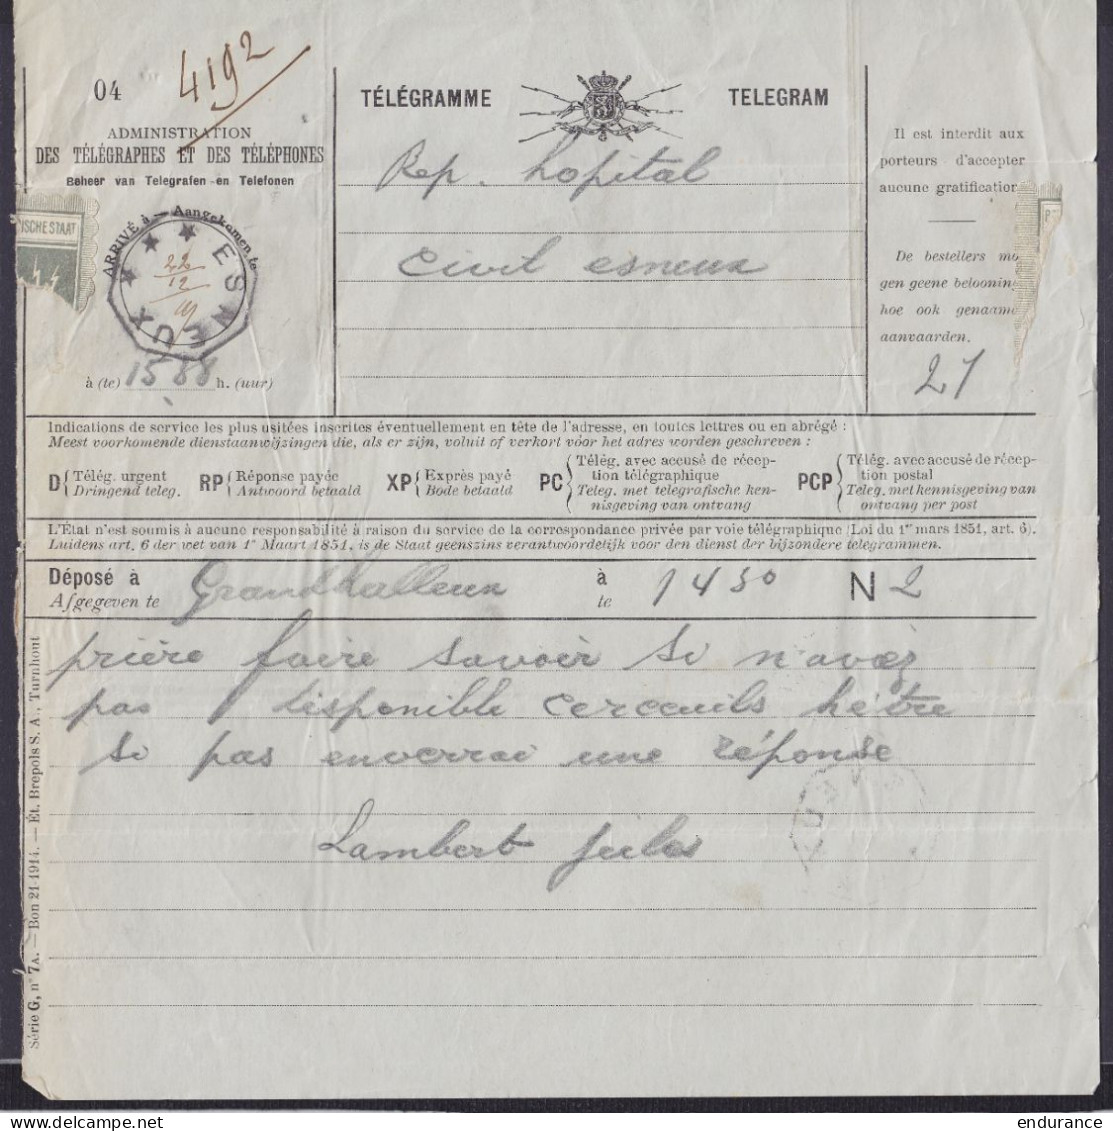 04
4192
ADMINISTRATION
DES TÉLÉGRAPHES ET DES TÉLÉPHONES
Beheer van Telegrafen en Telefonen
ISCHE STAAT
ARRIVÉ à — Aangekomen te
ESNEUX
22
12
19
à (te) 15 h. (uur)
TÉLÉGRAMME
TELEGRAM
Rep. hopital
civil esneux
Il est interdit aux
porteurs d'accepter
aucune gratification
De bestellers mo
gen geene belooning
hoe ook genaamd
aanvaarden.
21
Indications de service les plus usitées inscrites éventuellement en tête de l'adresse, en toutes lettres ou en abrégé :
Meest voorkomende dienstaanwijzingen die, als er zijn, voluit of verkort vóór het adres worden geschreven :
D Télég. urgent
Dringend teleg.
RP Réponse payée
Antwoord betaald
XP Exprès payé
Bode betaald
PC Télég. avec accusé de récep-
tion télégraphique
Teleg. met telegrafische ken-
nisgeving van ontvang
PCP Télég. avec accusé de récep-
tion postal
Teleg. met kennisgeving van
ontvang per post
L'État n'est soumis à aucune responsabilité à raison du service de la correspondance privée par voie télégraphique (Loi du 1er mars 1851, art. 6).
Luidens art. 6 der wet van 1n Maart 1851, is de Staat geenszins verantwoordelijk voor den dienst der bijzondere telegrammen.
Déposé à Grandhalleux à 1430 N 2
Afgegeven te te
prière faire savoir si n'avez
pas disponible cerceuils hêtre
si pas enverrai une réponse
Lambert Jules
Série G, n° 7A. — Bon 21-1914. — Ét. Brepols S. A., Turnhout
endurance